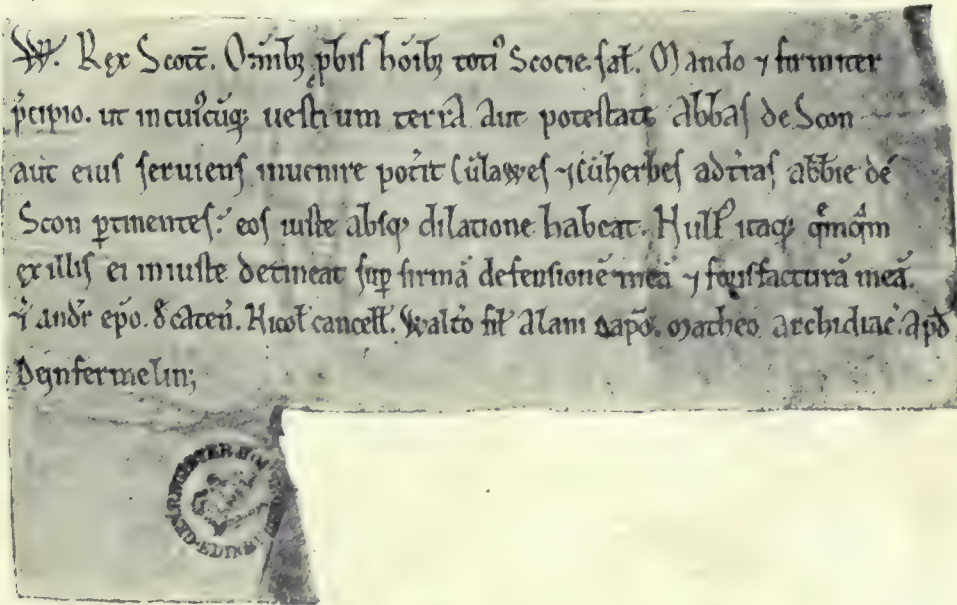 W. Rex Scott̄. Om̄ibꝫ ꝓbis hoībꝫ toti᷒ Scocie. sal̄. Mando ⁊ firmiter
p̄cipio. ut in cui᷒cūqꝫ uestrum terrā aut potestatē abbas de Scon
aut eius seruiens inuenire pot̄it Cūlawes ⁊ cūherbes ad tr̄as abb̄ie de
Scon ꝑtinentes. eos iuste absqꝫ dilatione habeat. Null᷒ itaqꝫ
ex illis ei iniuste detineat suꝑ firmā defensionē meā ⁊ forisfacturā meā.
T̄ andr̄ ep̄o. de caten̄. Nicol̄ cancell̄. Walt̄o fil̄ alani dap̄o. Matheo archidiac̄. apd̄
Dunfermelin;
REGISTER H
AND·EDINBU